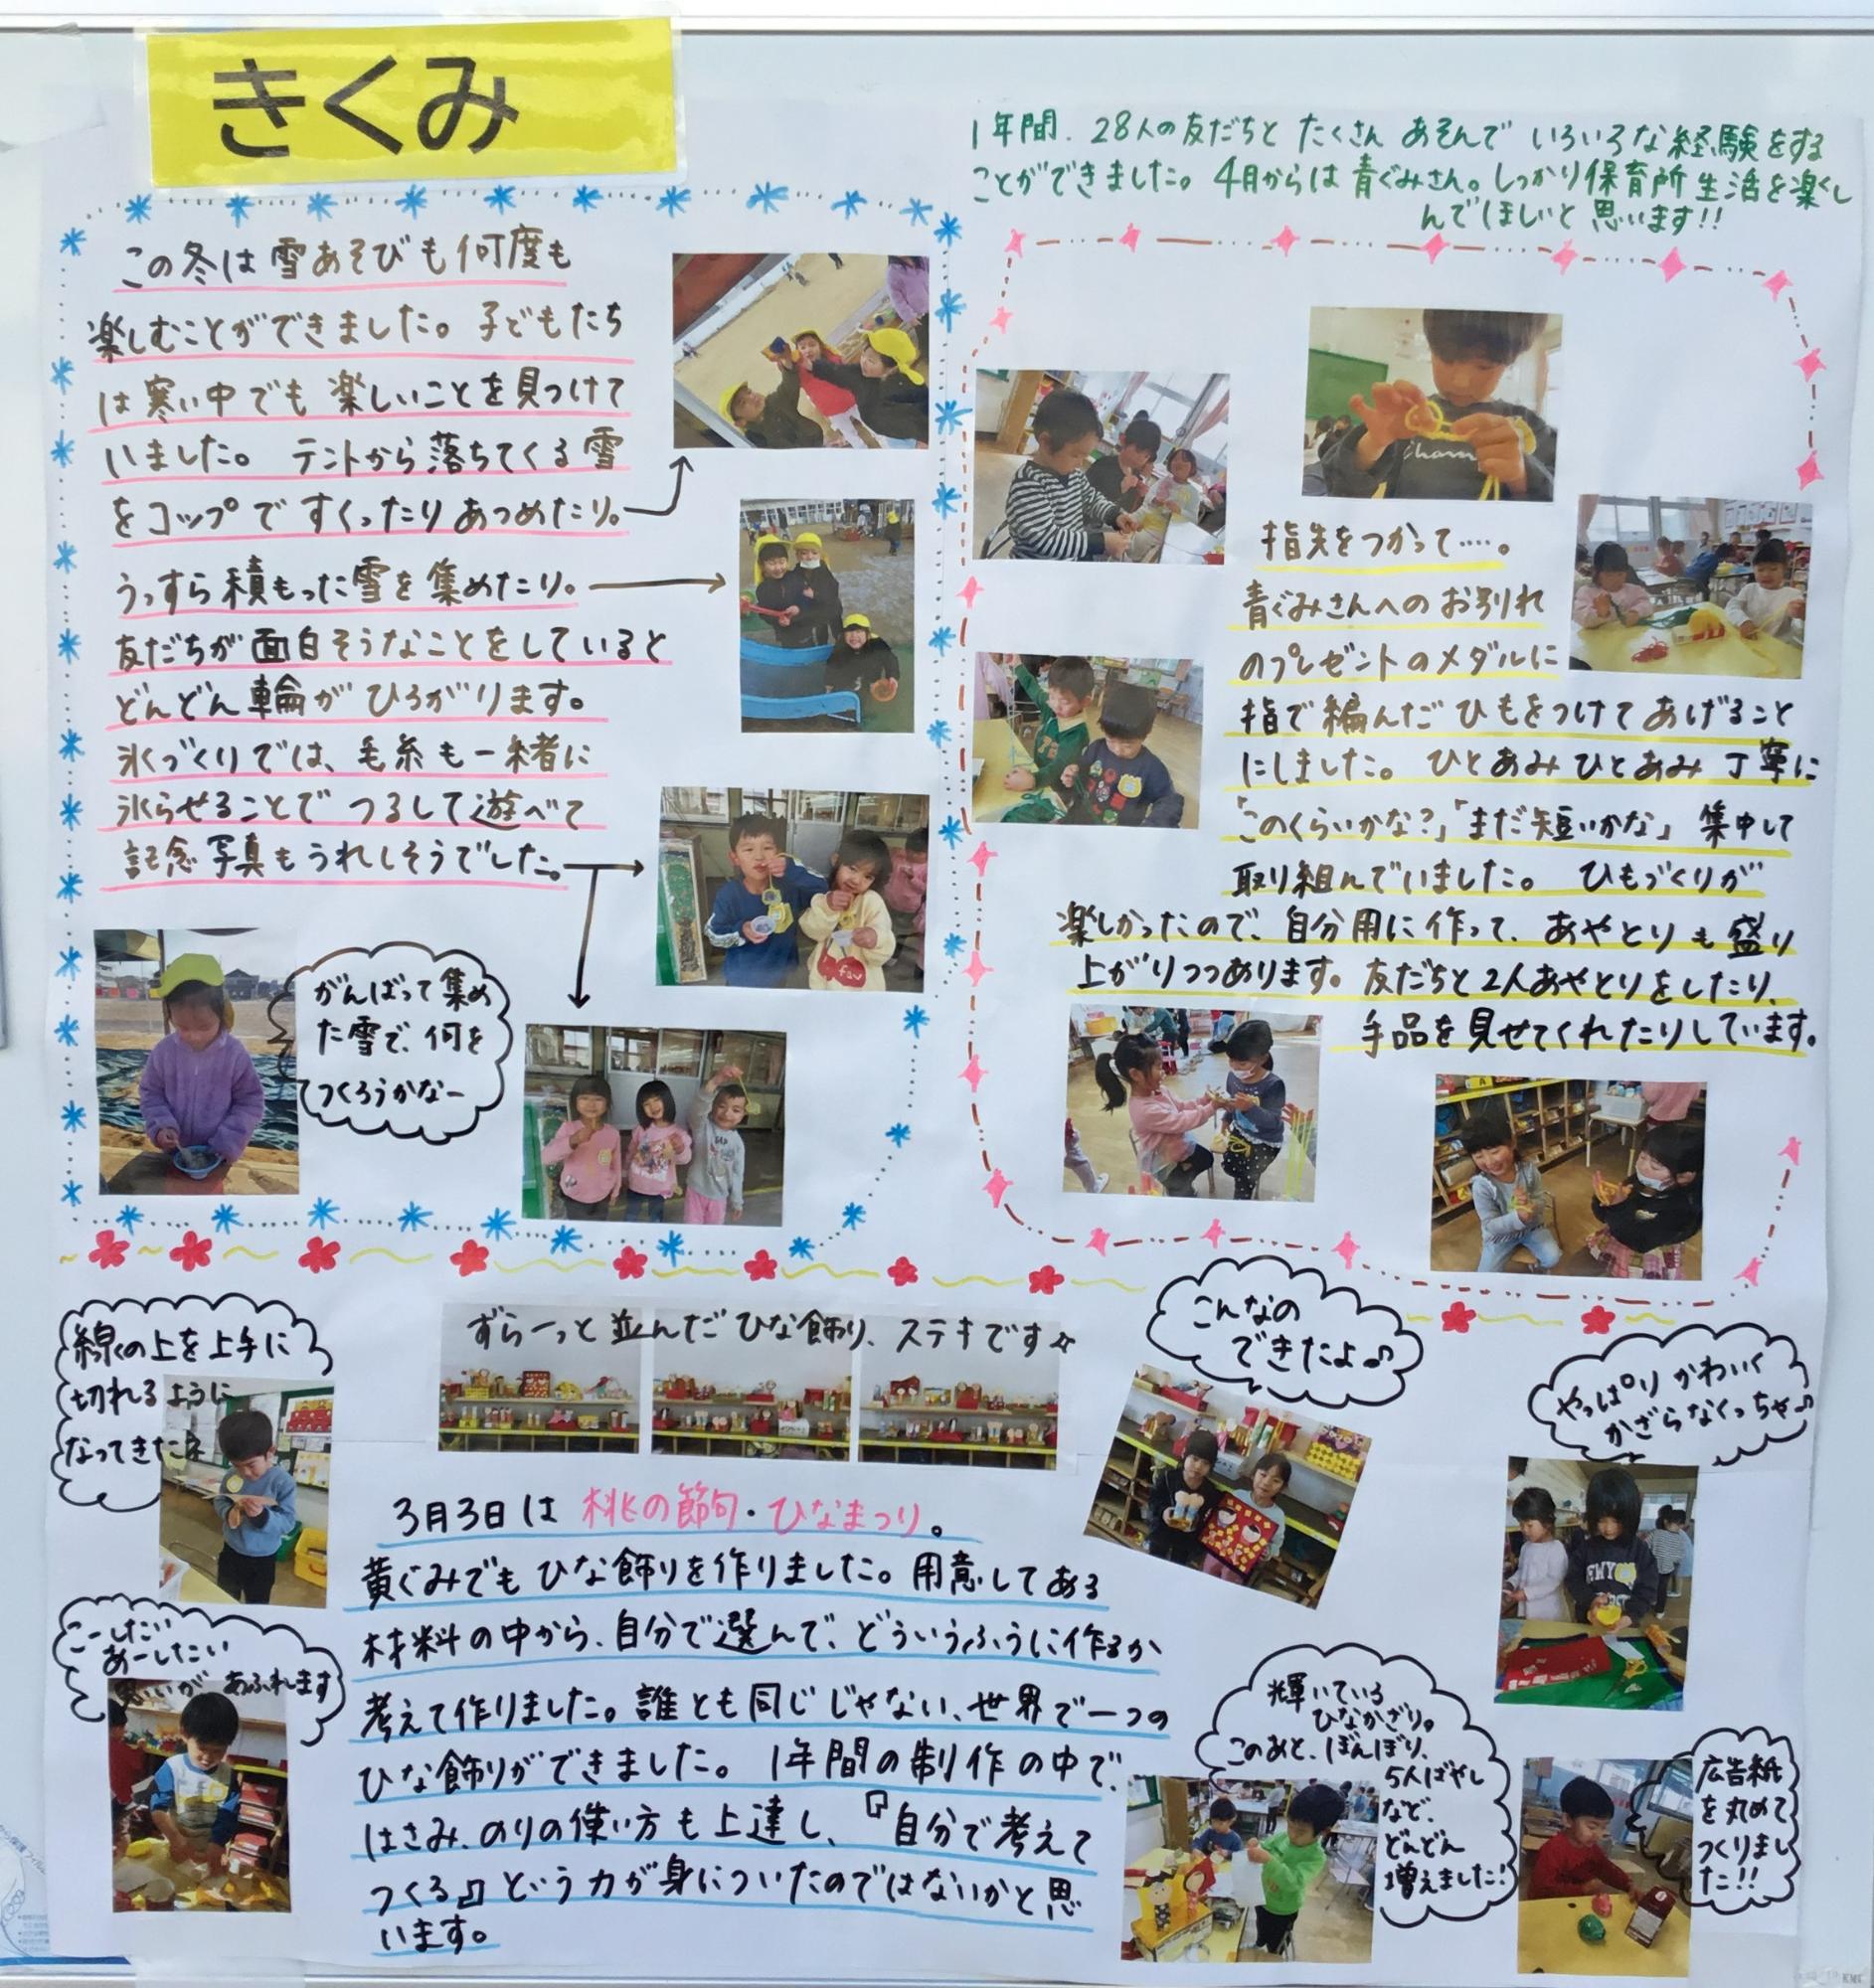 きくみ
1年間、28人の友だちと たくさん あそんで いろいろな経験をする
ことができました。4月からは 青ぐみさん。しっかり保育所生活を楽し
んでほしいと思います!!
この冬は 雪あそびも何度も
楽しむことができました。子どもたち
は寒い中でも 楽しいことを見つけて
いました。テントから落ちてくる雪
をコップで すくったり あつめたり。
うっすら積もった雪を集めたり。
友だちが面白そうなことをしていると
どんどん輪が ひろがります。
氷づくりでは、毛糸も一緒に
氷らせることで つるして遊べて
記念写真もうれしそうでした。
がんばって集め
た雪で、何を
つくろうかなー
指先をつかって….。
青ぐみさんへの お別れ
のプレゼントのメダルに
指で編んだ ひもをつけて あげること
にしました。ひとあみ ひとあみ 丁寧に
「このくらいかな?」「まだ短いかな」集中して
取り組んでいました。 ひもづくりが
楽しかったので、自分用に作って、あやとりも盛り
上がりつつあります。友だちと2人あやとりをしたり、
手品を見せてくれたりしています。
線の上を上手に
切れるように
なってきたネ
ずらーっと並んだひな飾り、ステキです☆
こんなの
できたよ♪
やっぱり かわいく
かざらなくっちゃ♪
3月3日は 桃の節句・ひなまつり。
黄ぐみでも ひな飾りを作りました。用意してある
材料の中から、自分で選んで、どういうふうに作るか
考えて作りました。誰とも同じじゃない、世界で一つの
ひな飾りができました。1年間の制作の中で、
はさみ、のりの使い方も上達し、『自分で考えて
つくる』という力が身についたのではないかと思
います。
こーしたい
あーしたい
思いが あふれます
輝いている
ひなかざり。
このあと、ぼんぼり、
5人ばやし
など、
どんどん
増えました!
広告紙
を丸めて
つくりまし
た!!